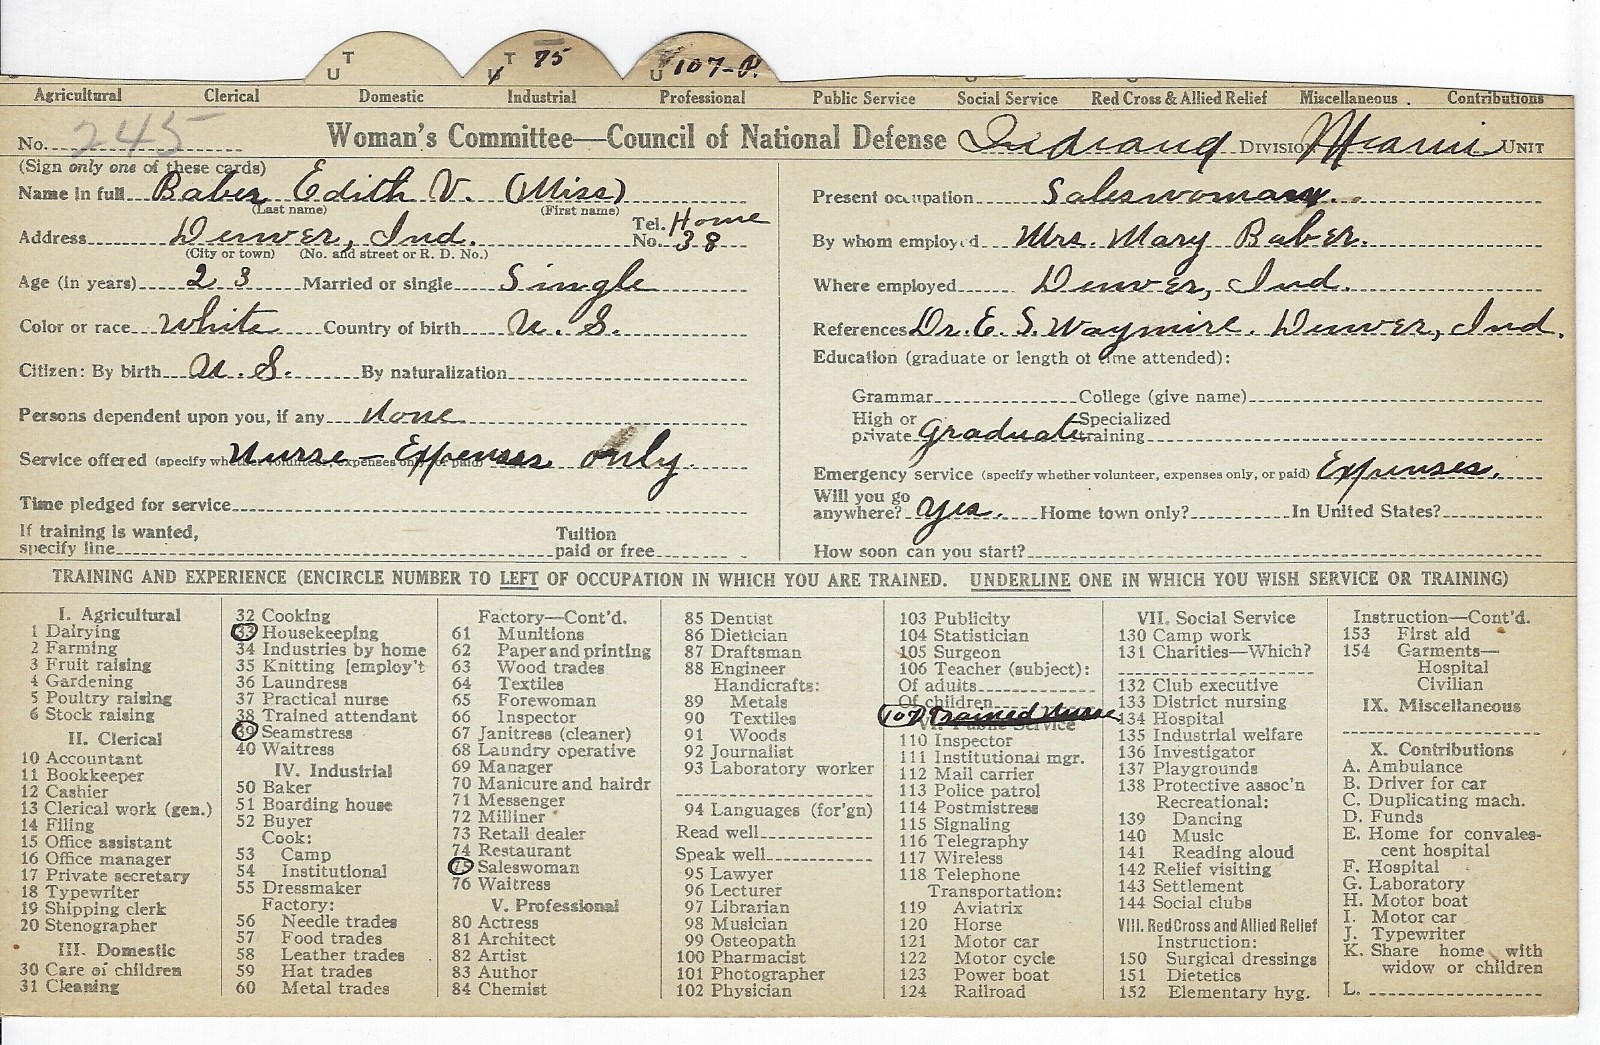 T T 75 107-P.
U U U
Agricultural Clerical Domestic Industrial Professional Public Service Social Service Red Cross & Allied Relief Miscellaneous . Contributions
No. 245 Woman's Committee—Council of National Defense Indiana DIVISION Miami UNIT
(Sign only one of these cards)
Name in full Baber Edith V. (Miss)
(Last name) (First name)
Address Denver, Ind. Tel. No. Home 38
(City or town) (No. and street or R. D. No.)
Age (in years) 23 Married or single Single
Color or race White Country of birth U. S.
Citizen: By birth U. S. By naturalization
Persons dependent upon you, if any None
Service offered (specify whether volunteer, expenses only, or paid) Nurse - Expenses only.
Time pledged for service
If training is wanted,
specify line Tuition paid or free
Present occupation Saleswoman.
By whom employed Mrs. Mary Baber.
Where employed Denver, Ind.
References Dr. E. S. Waymire. Denver, Ind.
Education (graduate or length of time attended):
Grammar College (give name)
High or private graduate Specialized training
Emergency service (specify whether volunteer, expenses only, or paid) Expenses.
Will you go anywhere? Yes. Home town only? In United States?
How soon can you start?
TRAINING AND EXPERIENCE (ENCIRCLE NUMBER TO LEFT OF OCCUPATION IN WHICH YOU ARE TRAINED. UNDERLINE ONE IN WHICH YOU WISH SERVICE OR TRAINING)
I. Agricultural
1 Dairying
2 Farming
3 Fruit raising
4 Gardening
5 Poultry raising
6 Stock raising
II. Clerical
10 Accountant
11 Bookkeeper
12 Cashier
13 Clerical work (gen.)
14 Filing
15 Office assistant
16 Office manager
17 Private secretary
18 Typewriter
19 Shipping clerk
20 Stenographer
III. Domestic
30 Care of children
31 Cleaning
32 Cooking
33 Housekeeping
34 Industries by home
35 Knitting [employ't
36 Laundress
37 Practical nurse
38 Trained attendant
39 Seamstress
40 Waitress
IV. Industrial
50 Baker
51 Boarding house
52 Buyer
Cook:
53 Camp
54 Institutional
55 Dressmaker
Factory:
56 Needle trades
57 Food trades
58 Leather trades
59 Hat trades
60 Metal trades
Factory—Cont'd.
61 Munitions
62 Paper and printing
63 Wood trades
64 Textiles
65 Forewoman
66 Inspector
67 Janitress (cleaner)
68 Laundry operative
69 Manager
70 Manicure and hairdr
71 Messenger
72 Milliner
73 Retail dealer
74 Restaurant
75 Saleswoman
76 Waitress
V. Professional
80 Actress
81 Architect
82 Artist
83 Author
84 Chemist
85 Dentist
86 Dietician
87 Draftsman
88 Engineer
Handicrafts:
89 Metals
90 Textiles
91 Woods
92 Journalist
93 Laboratory worker
94 Languages (for'gn)
Read well
Speak well
95 Lawyer
96 Lecturer
97 Librarian
98 Musician
99 Osteopath
100 Pharmacist
101 Photographer
102 Physician
103 Publicity
104 Statistician
105 Surgeon
106 Teacher (subject):
Of adults
Of children
107 Trained Nurse
VI. Public Service
110 Inspector
111 Institutional mgr.
112 Mail carrier
113 Police patrol
114 Postmistress
115 Signaling
116 Telegraphy
117 Wireless
118 Telephone
Transportation:
119 Aviatrix
120 Horse
121 Motor car
122 Motor cycle
123 Power boat
124 Railroad
VII. Social Service
130 Camp work
131 Charities—Which?
132 Club executive
133 District nursing
134 Hospital
135 Industrial welfare
136 Investigator
137 Playgrounds
138 Protective assoc'n
Recreational:
139 Dancing
140 Music
141 Reading aloud
142 Relief visiting
143 Settlement
144 Social clubs
VIII. Red Cross and Allied Relief
Instruction:
150 Surgical dressings
151 Dietetics
152 Elementary hyg.
Instruction—Cont'd.
153 First aid
154 Garments—
Hospital
Civilian
IX. Miscellaneous
X. Contributions
A. Ambulance
B. Driver for car
C. Duplicating mach.
D. Funds
E. Home for convales-
cent hospital
F. Hospital
G. Laboratory
H. Motor boat
I. Motor car
J. Typewriter
K. Share home with
widow or children
L.